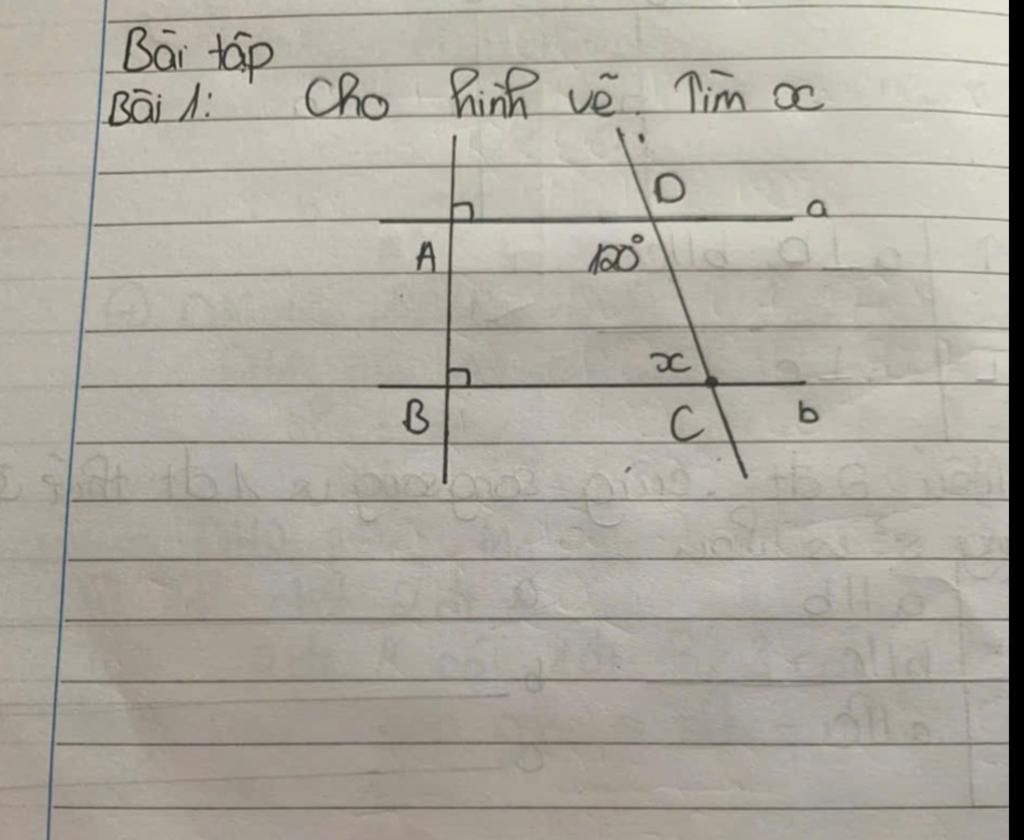 Bài tập
Bài 1: Cho hình vẽ. Tìm x
D
a
A
120°
x
B
C
b